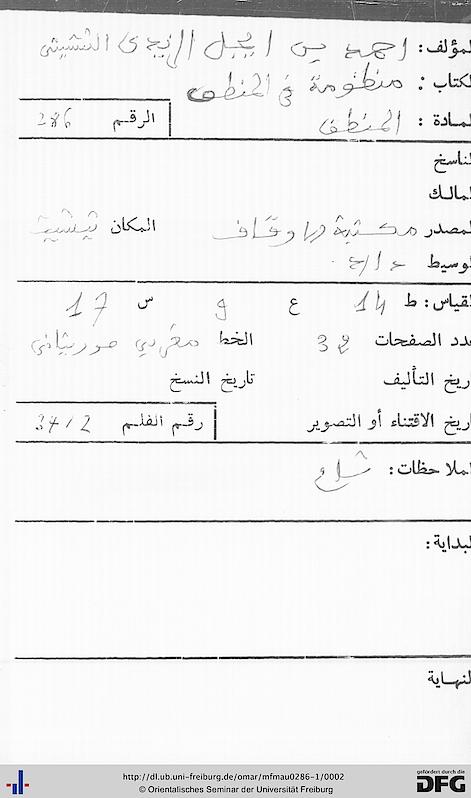 لمؤلف: احمد بن
لكتاب: منظومة في المنطق
لمادة: المنطق الرقم 286
لناسخ
لمالك
لمصدر مكتبة المكان تيشيت
لوسيط
لقياس: ط 14 ع 9 س 17
دد الصفحات 32 الخط مغربي موريتاني
اريخ التأليف تاريخ النسخ
اريخ الاقتناء أو التصوير رقم الفلم
لملاحظات:
لبداية:
لنهاية
http://dl.ub.uni-freiburg.de/omar/mfmau0286-1/0002
© Orientalisches Seminar der Universität Freiburg
gefördert durch die
DFG